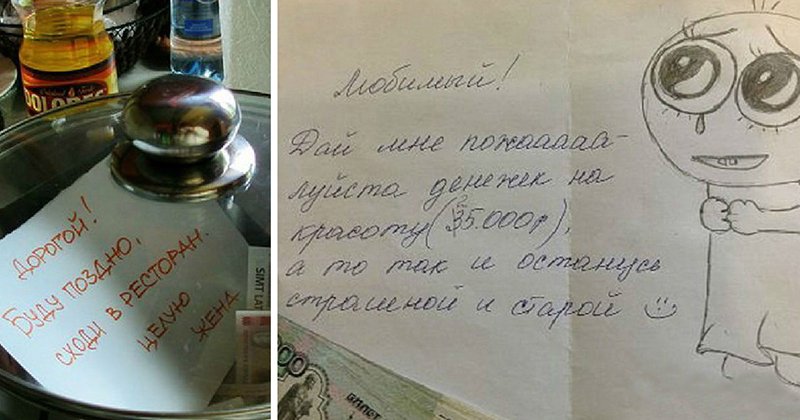 DOLORES
ДОРОГОЙ!
БУДУ ПОЗДНО,
СХОДИ В РЕСТОРАН.
ЦЕЛУЮ
ЖЕНА
SIMT LAT
Любимый!
Дай мне пожааааа-
луйста денежек на
красоту (35.000р),
а то так и останусь
страшной и старой